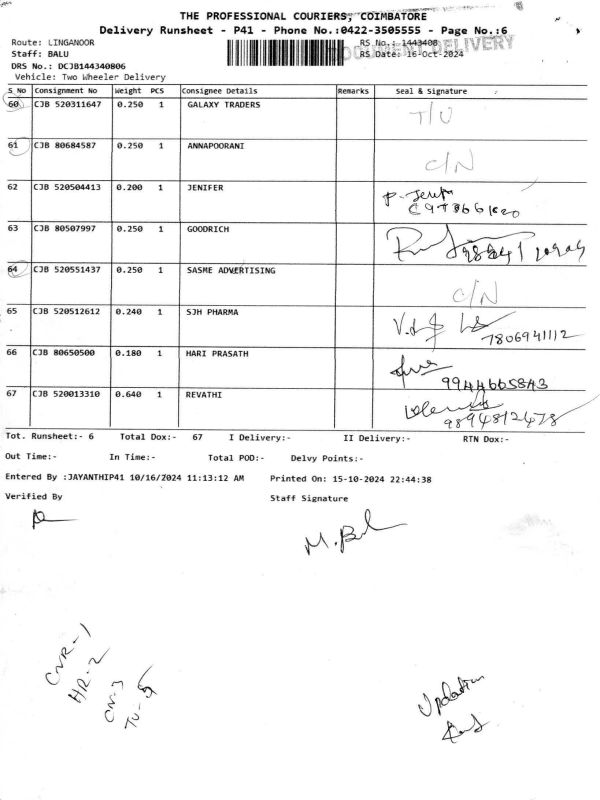 THE PROFESSIONAL COURIERS, COIMBATORE
Delivery Runsheet - P41 - Phone No.:0422-3505555 - Page No.:6
Route: LINGANOOR RS No.: 1443408
Staff: BALU RS Date: 16-Oct-2024
DOCUMENT DELIVERY
DRS No.: DCJB144340806
Vehicle: Two Wheeler Delivery
S No Consignment No Weight PCS Consignee Details Remarks Seal & Signature
60 CJB 520311647 0.250 1 GALAXY TRADERS T/U
61 CJB 80684587 0.250 1 ANNAPOORANI C/N
62 CJB 520504413 0.200 1 JENIFER
63 CJB 80507997 0.250 1 GOODRICH
64 CJB 520551437 0.250 1 SASME ADVERTISING C/N
65 CJB 520512612 0.240 1 SJH PHARMA 7806941112
66 CJB 80650500 0.180 1 HARI PRASATH 9944665843
67 CJB 520013310 0.640 1 REVATHI 9894812478
Tot. Runsheet:- 6 Total Dox:- 67 I Delivery:- II Delivery:- RTN Dox:-
Out Time:- In Time:- Total POD:- Delvy Points:-
Entered By :JAYANTHIP41 10/16/2024 11:13:12 AM Printed On: 15-10-2024 22:44:38
Verified By Staff Signature
M. Bal
CNR-1
HR-2
CN-3
Updation